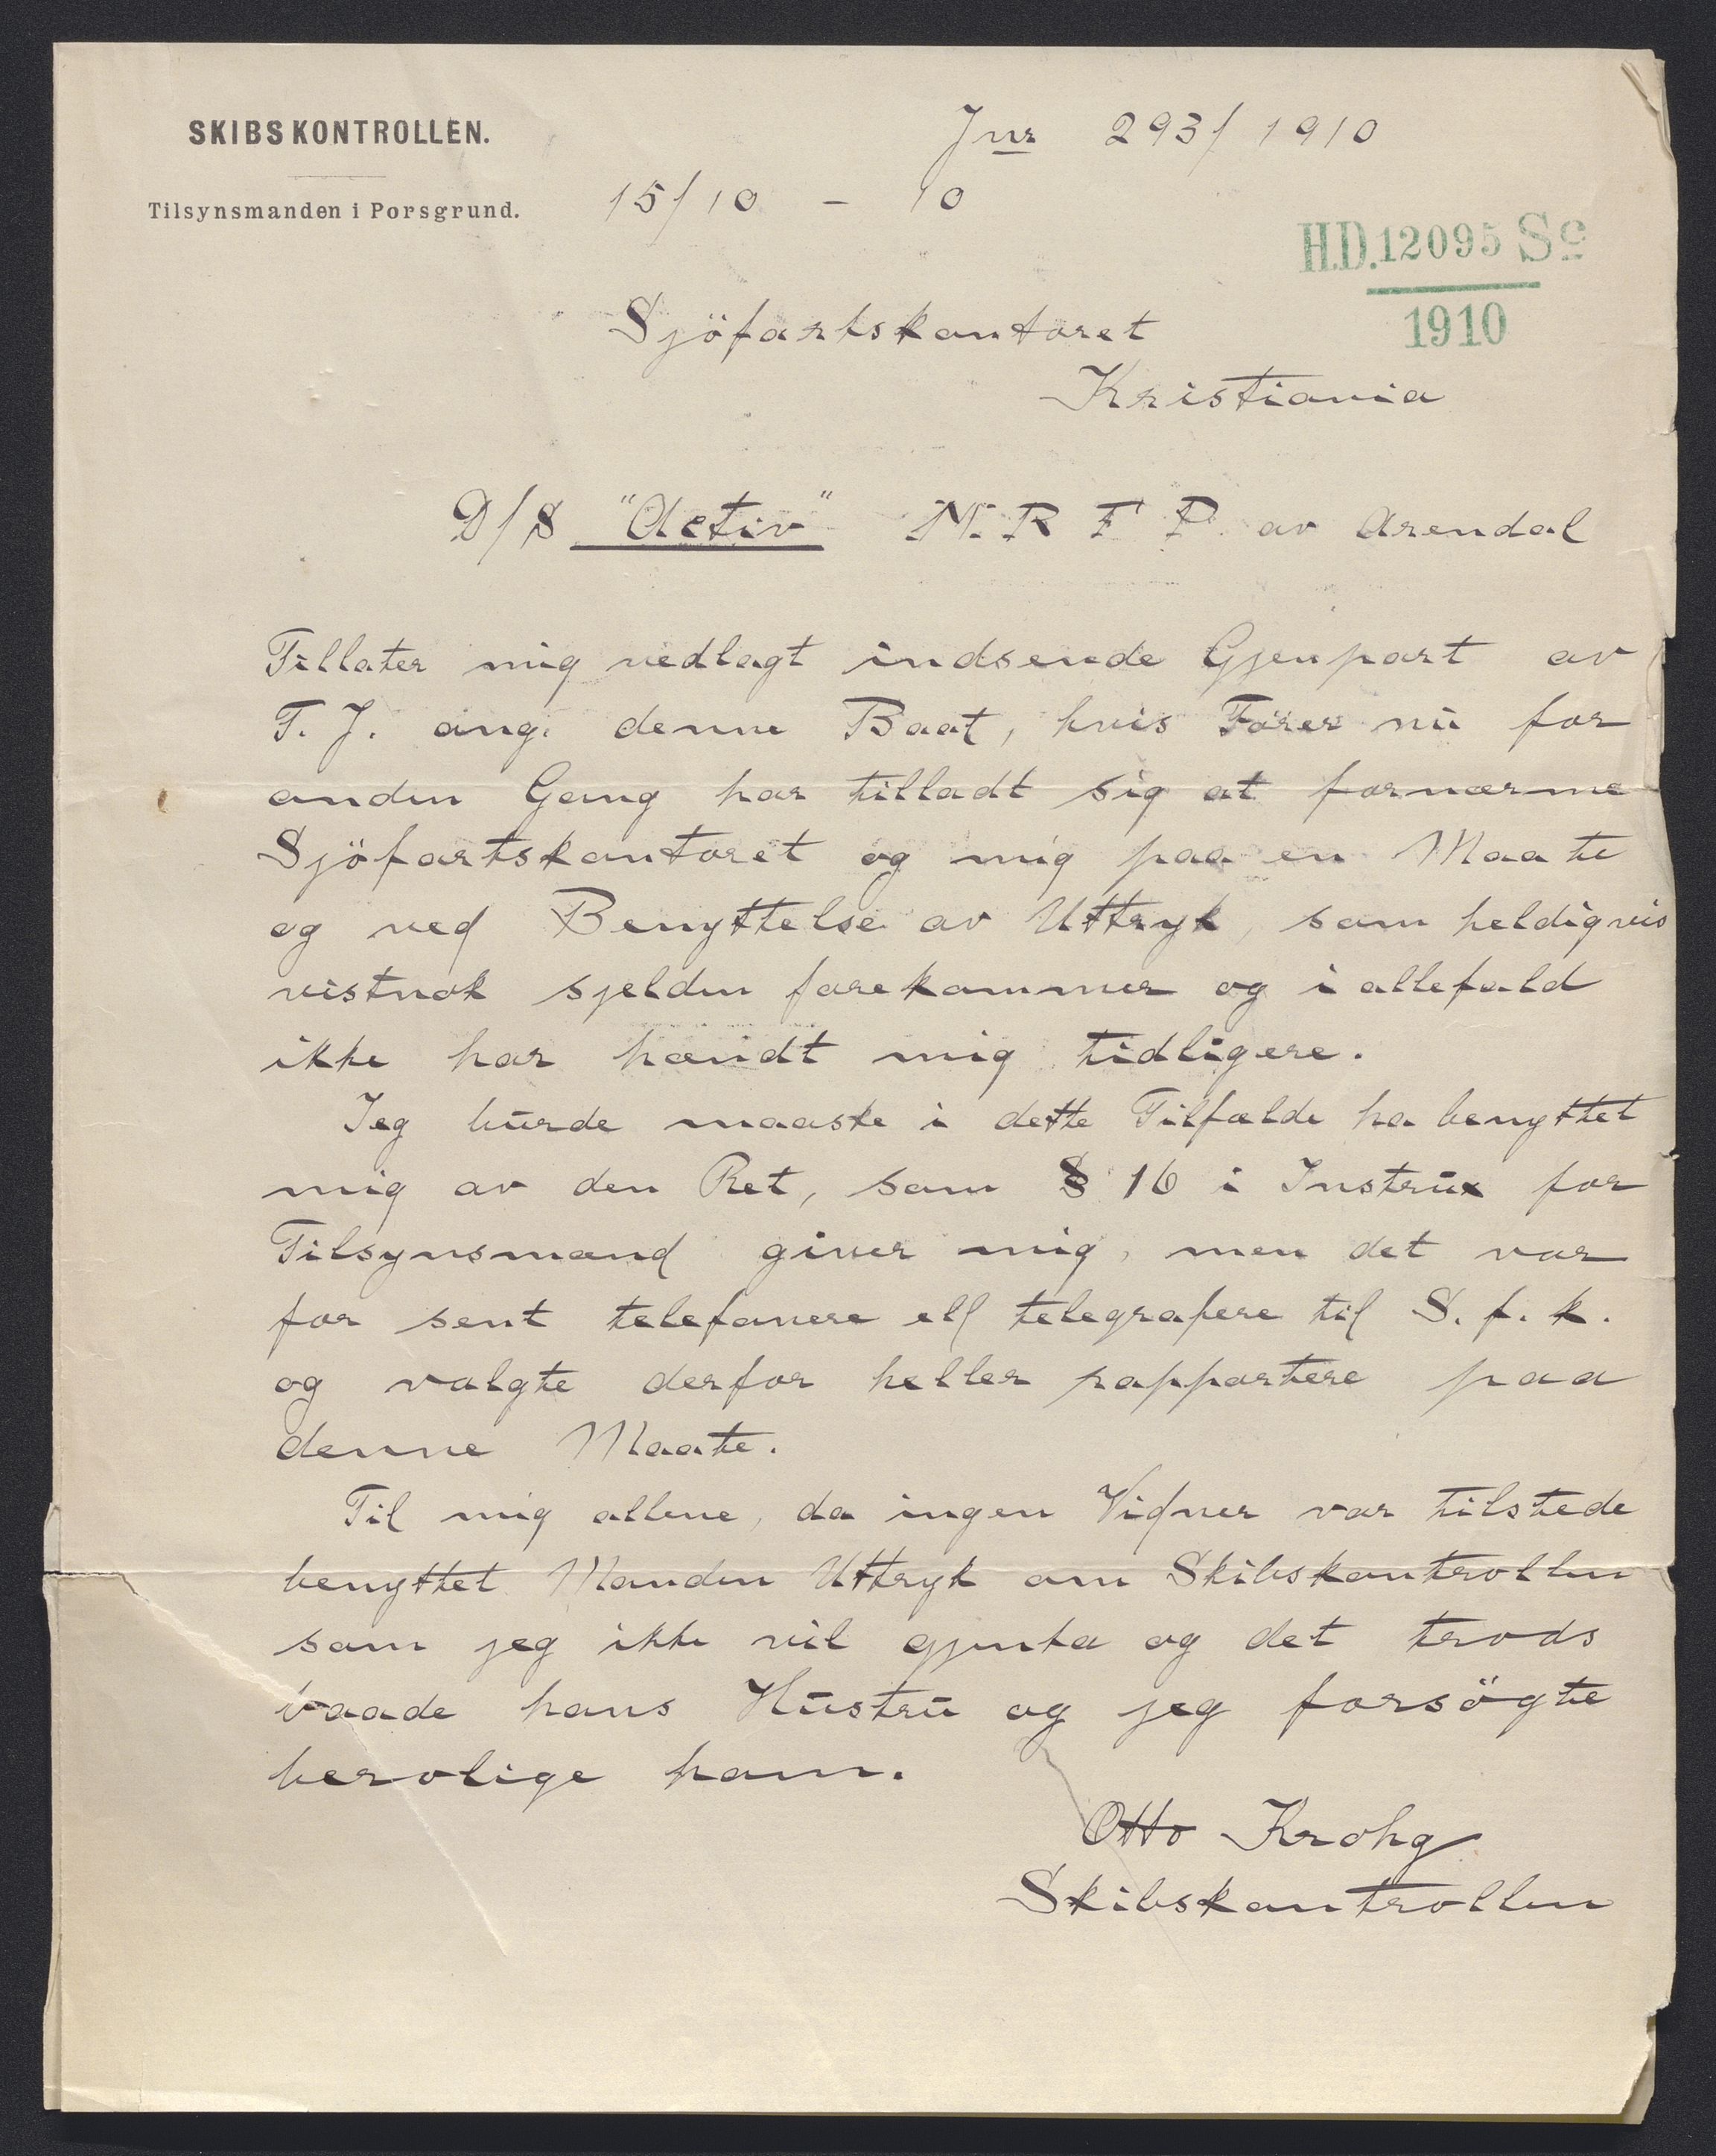 SKIBSKONTROLLEN.
Tilsynsmanden i Porsgrund.
Jnr 293/1910
15/10 - 10
H.D.12095 Sc
1910
Sjöfartskontoret
Kristiania
D/S "Activ" M. R F P. av Arendal
Tillater mig vedlagt indsende Gjenpart av
T. J. ang. denne Baat, hvis Fører nu for
anden Gang har tilladt sig at fornærme
Sjöfartskontoret og mig paa en Maate
og ved Benyttelse av Uttryk, som heldigvis
vistnok sjelden forekommer og i allefald
ikke har hændt mig tidligere.
Jeg burde maaske i dette Tilfælde ha benyttet
mig av den Ret, som § 16 i Instrux for
Tilsynsmænd giver mig, men det var
for sent telefonere ell telegrafere til S. f. k.
og valgte derfor heller rapportere paa
denne Maate.
Til mig allene, da ingen Vidner var tilstede
benyttet Manden Uttryk om Skibskontrollen
som jeg ikke vil gjenta og det trods
baade hans Hustru og jeg forsögte
berolige ham.
Otto Krohg
Skibskontrollen